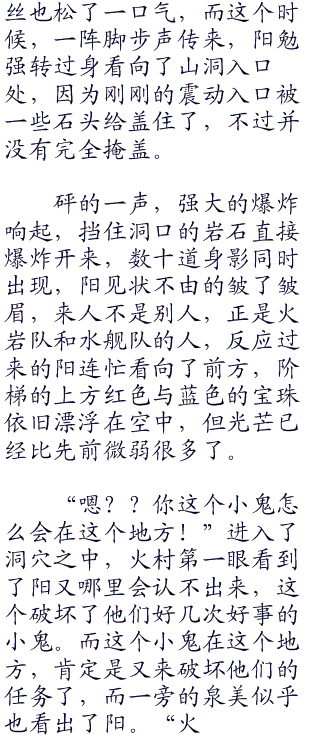 丝也松了一口气，而这个时
候，一阵脚步声传来，阳勉
强转过身看向了山洞入口
处，因为刚刚的震动入口被
一些石头给盖住了，不过并
没有完全掩盖。
砰的一声，强大的爆炸
响起，挡住洞口的岩石直接
爆炸开来，数十道身影同时
出现，阳见状不由的皱了皱
眉，来人不是别人，正是火
岩队和水舰队的人，反应过
来的阳连忙看向了前方，阶
梯的上方红色与蓝色的宝珠
依旧漂浮在空中，但光芒已
经比先前微弱很多了。
“嗯？？你这个小鬼怎
么会在这个地方！”进入了
洞穴之中，火村第一眼看到
了阳又哪里会认不出来，这
个破坏了他们好几次好事的
小鬼。而这个小鬼在这个地
方，肯定是又来破坏他们的
任务了，而一旁的泉美似乎
也看出了阳。“火